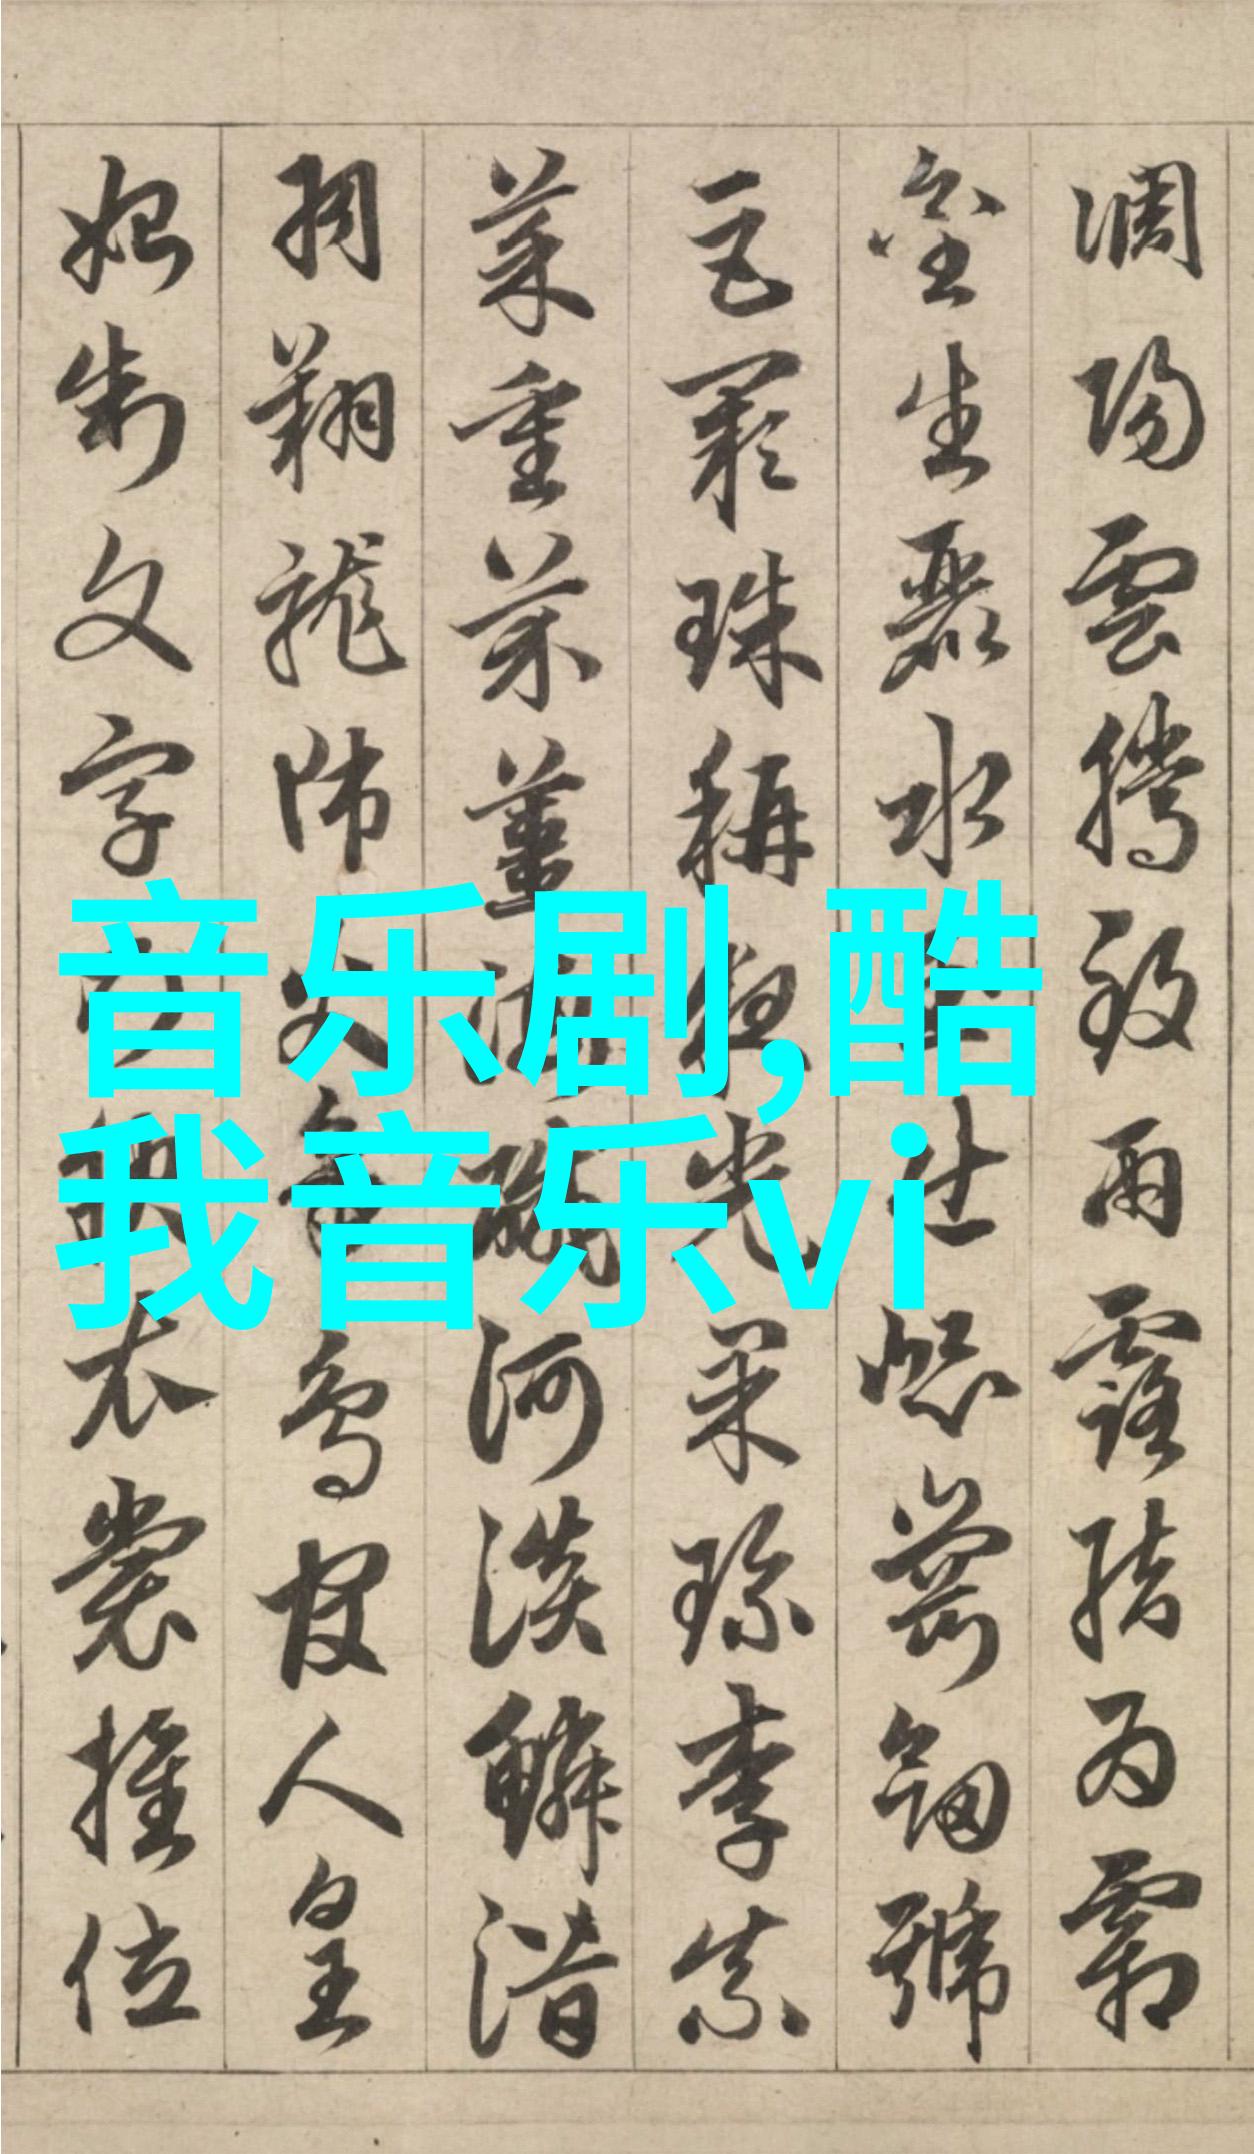 音乐剧,酷
我音乐vi
調陽雲騰致雨露結為霜
金生麗水玉出崑崗劍號
巨闕珠稱夜光果珍李柰
菜重芥薑海鹹河淡鱗潛
羽翔龍師火帝鳥官人皇
始制文字乃服衣裳推位